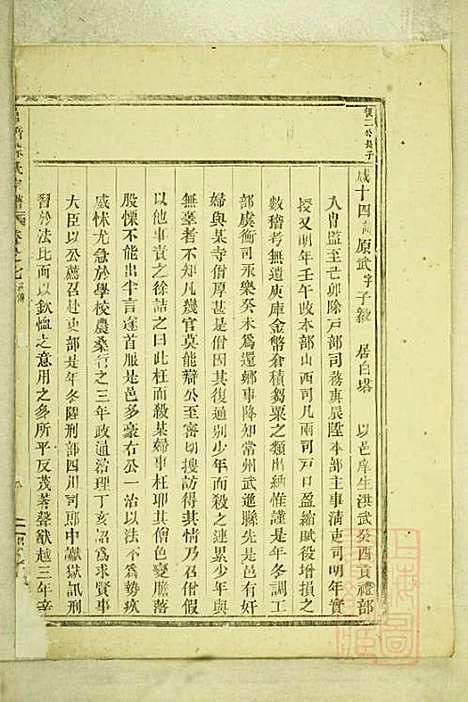 復二公長子
咸十四 原武 字子毅 居白塔 以邑庠生洪武癸酉貢禮部
入胄監至己卯除戸部司務庚辰陞本部主事清吏司明年實
授又明年壬午改本部山西司凡兩司戸口盈縮賦役增損之
數稽考無遺庚庫金幣倉積芻粟之類出納惟謹是年冬調工
部虞衡司永樂癸未爲還鄉事降知常州武進縣先是邑有奸
婦與某寺僧厚甚是僧因其復通别少年而殺之連累少年與
無辜者不知凡幾官莫能辯公至審切搜訪得其情乃召僧假
以他事責之徐詰之曰此枉而殺某婦事枉耶其僧色變膽落
股慄不能出半言遂首服是邑多豪右公一治以法不爲勢疚
威怵尤急於學校農桑行之三年政通治理丁亥詔爲求賢事
大臣以公薦召赴吏部是年冬陞刑部四川司郎中讞獄訊刑
習於法比而以欽恤之意用之多所平反茂著聲猷越三年辛
氏宗譜 卷之七